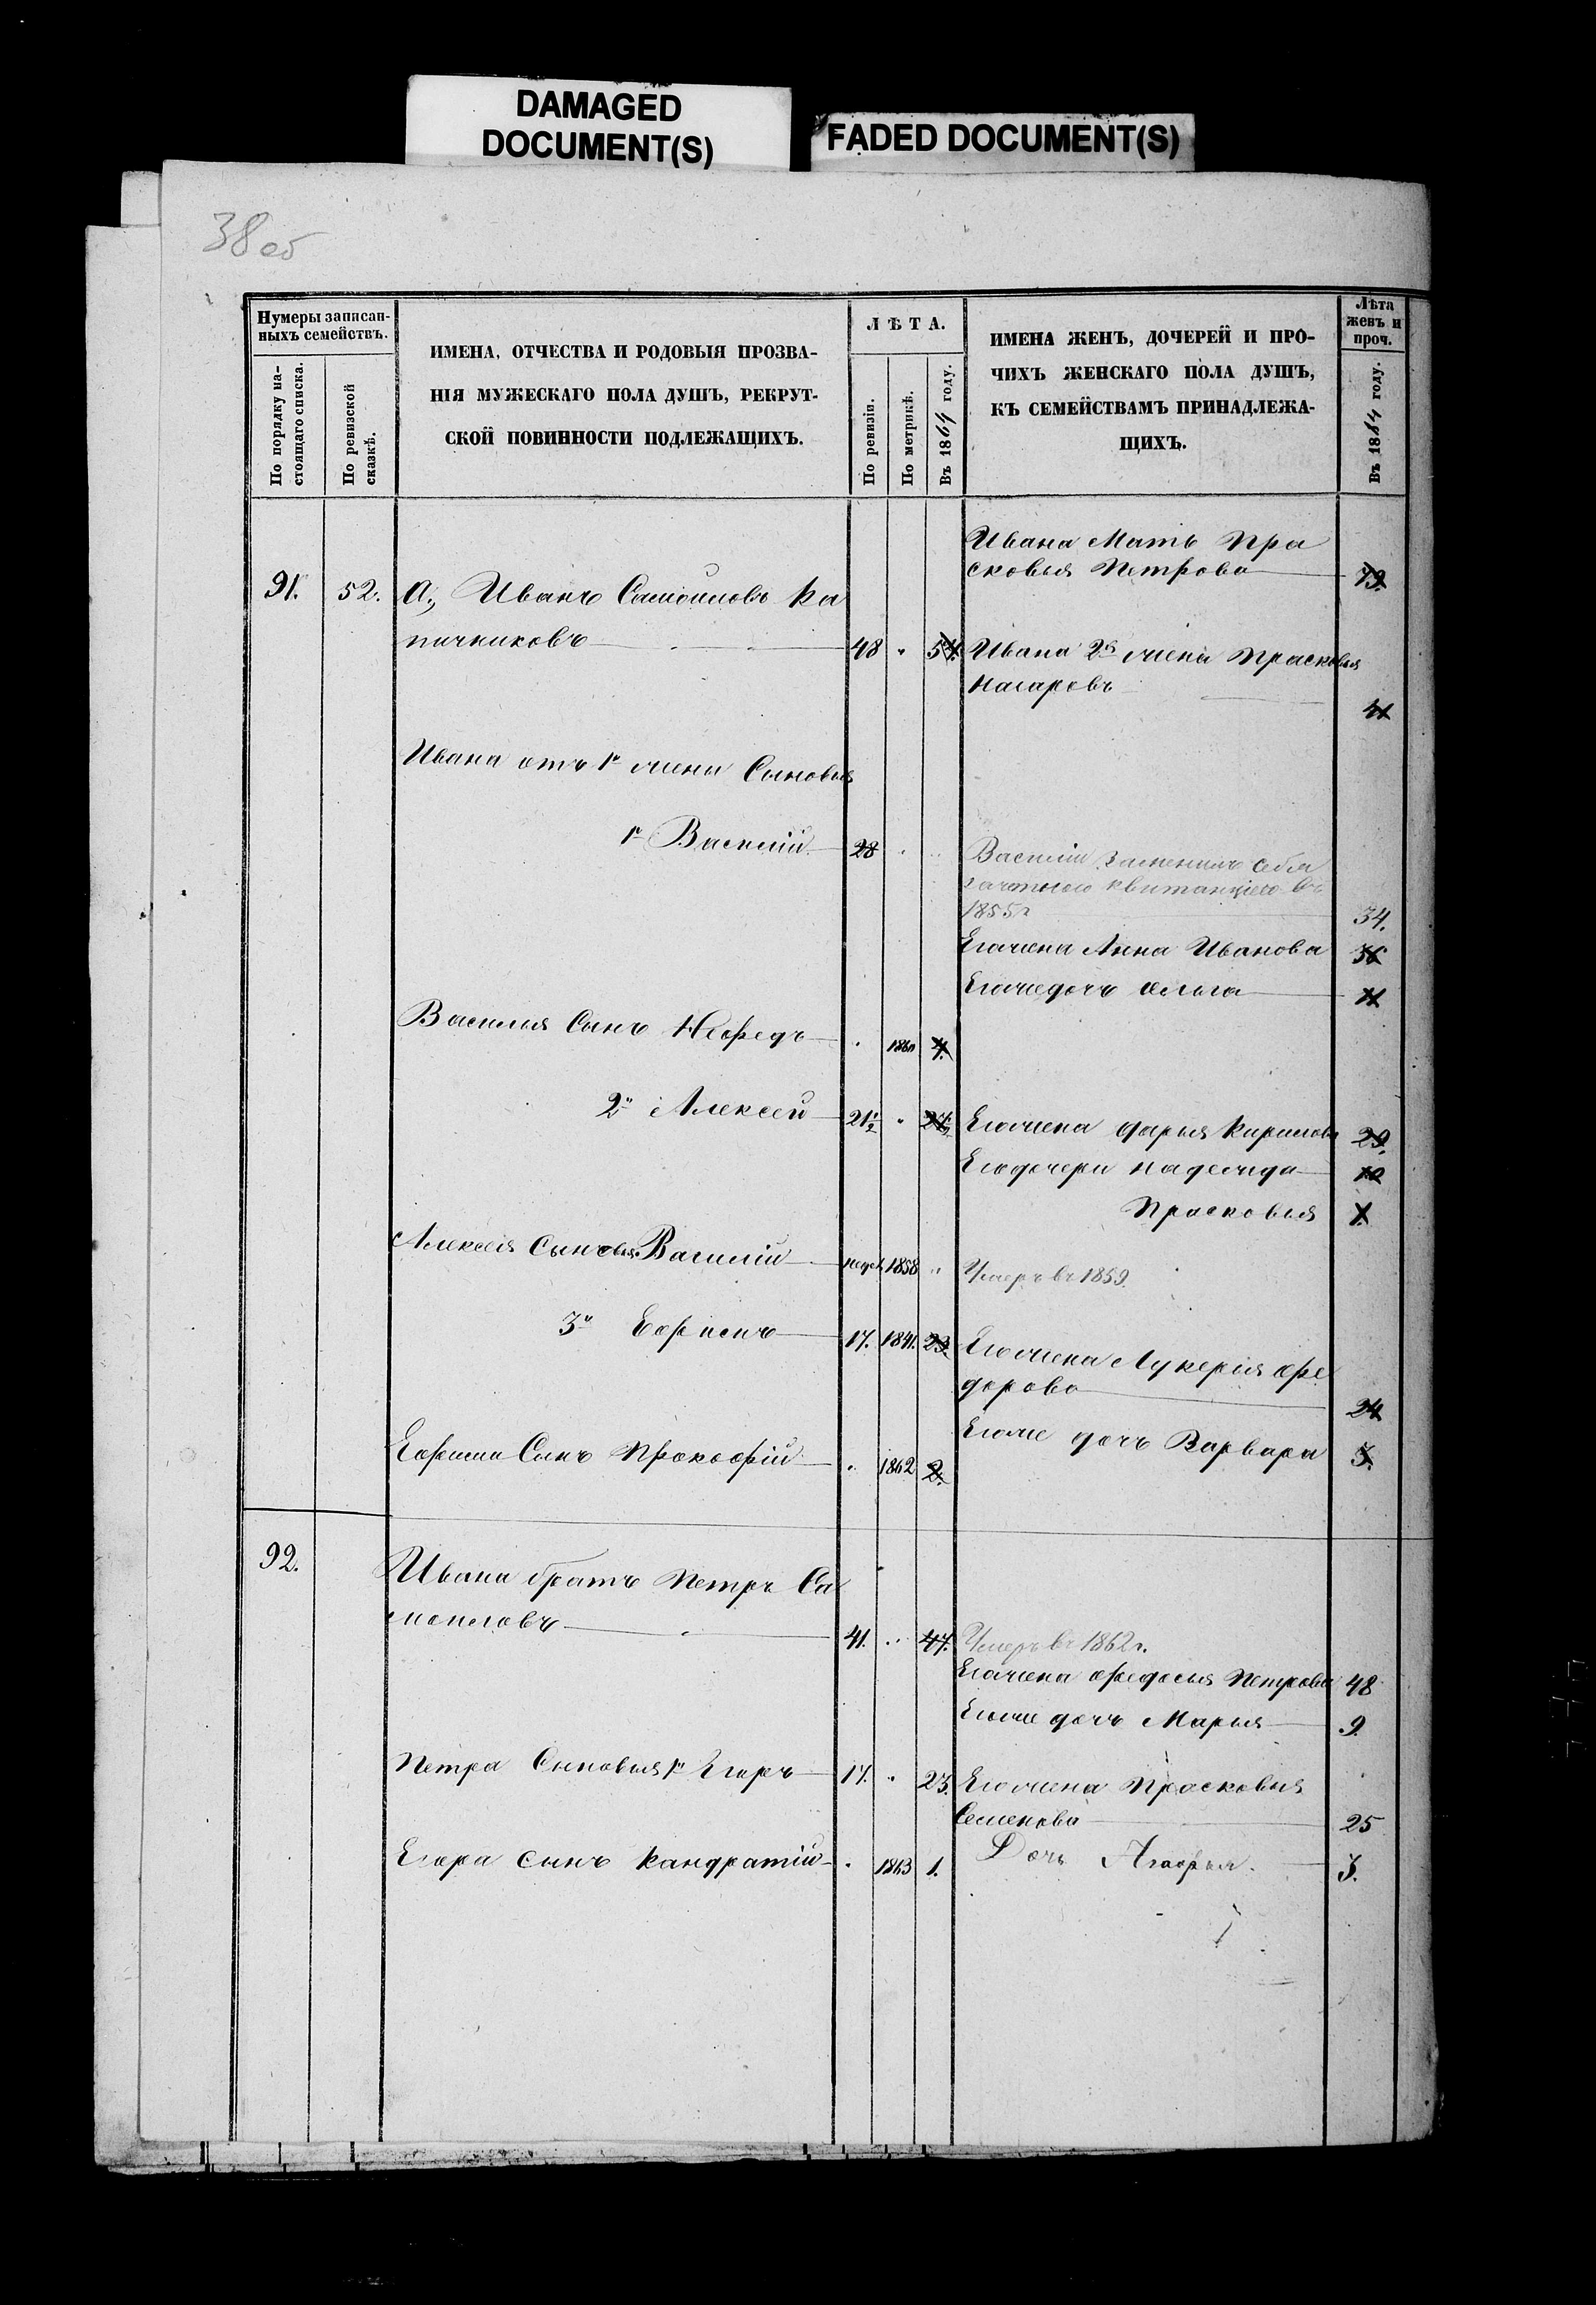 DAMAGED
DOCUMENT(S)
FADED DOCUMENT(S)
38 об
Нумеры записан-
ныхъ семействъ.
По порядку на-
стоящаго списка.
По ревизской
сказкѣ.
ИМЕНА, ОТЧЕСТВА И РОДОВЫЯ ПРОЗВА-
НІЯ МУЖЕСКАГО ПОЛА ДУШЪ, РЕКРУТ-
СКОЙ ПОВИННОСТИ ПОДЛЕЖАЩИХЪ.
ЛѢТА.
По ревизіи.
По метрикѣ.
Въ 1864 году.
ИМЕНА ЖЕНЪ, ДОЧЕРЕЙ И ПРО-
ЧИХЪ ЖЕНСКАГО ПОЛА ДУШЪ,
КЪ СЕМЕЙСТВАМЪ ПРИНАДЛЕЖА-
ЩИХЪ.
Лѣта
женъ и
проч.
Въ 1864 году.
Ивана Мать Пра
сковья Петрова 79.
91. 52. а, Иванъ Самоиловъ Ка
пичниковъ 48 " 54. Ивана 2я жена Прасковья
Назаровъ
41
Ивана отъ 1й жены Сыновья
1й Василій 28 " " Василій
зачотною квитанціею въ
1855г 34.
Егожена Анна Иванова 36
Егожедочь Ольга 11
Василья Сынъ Нефедъ " 1860 4.
2й Алексей 21½ " 27½ Егожена Дарья Кирилова 29.
Егодочери Надежда 10
Прасковья 1.
Алексея Сыновья Василій недел 1858 " Умеръ въ 1859.
3й Ефимъ 17. 1841. 23. Егожена Лукерья Фе
дорова 24
Егоже дочь Варвара 3.
Ефима Сынъ Прокофій " 1862 2.
92. Ивана братъ Петръ Са
моиловъ 41. " 47. Умеръ въ 1862г.
Егожена Федосья Петрова 48
Егоже дочь Марья 9.
Петра Сыновья 1й Егоръ 17. " 23. Егожена Прасковья
Семенова 25
Егора сынъ Кандратій " 1863 1. Дочь Агафья. 3.